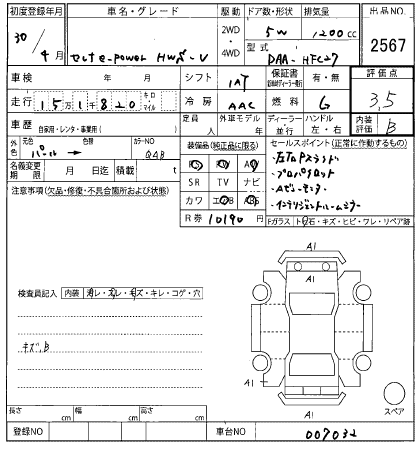 初度登録年月 車名・グレード 駆動 ドア数・形状 排気量 出品NO.
30/4月 セレナ e-power HWS-V 2WD・4WD 5W 1200cc 2567
型式 DAA-HFC27
車検 年 月 シフト IAT 保証書 有・無 評価点
走行 15万1千820 キロ マイル 冷房 AAC 燃料 G 3,5
車歴 自家用・レンタ・事業用( ) 定員 人 外車モデル 年 ディーラー・並行 ハンドル 左・右 内装評価 B
外色 元色 パール → 色替 カラーNO QAB
装備品(純正品に限る) セールスポイント(正常に作動するもの)
名義変更期限 月 日迄 積載 t
PS PW AW
・プロパイロット
注意事項(欠品・修復・不具合箇所および状態)
SR TV ナビ
・Aビューモニター
カワ エアB ABS
・インテリジェントルームミラー
R券 10190円
Fガラス トビ石・キズ・ヒビ・ワレ・リペア跡
A1
A1
検査員記入 内装 汚レ・スレ・キズ・キレ・コゲ・穴
キズ、B
A1
A1
スペア
長さ cm 幅 cm 高さ cm
登録NO 車台NO 007032